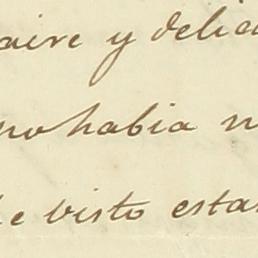 aire y delica
no habia n
he visto estas